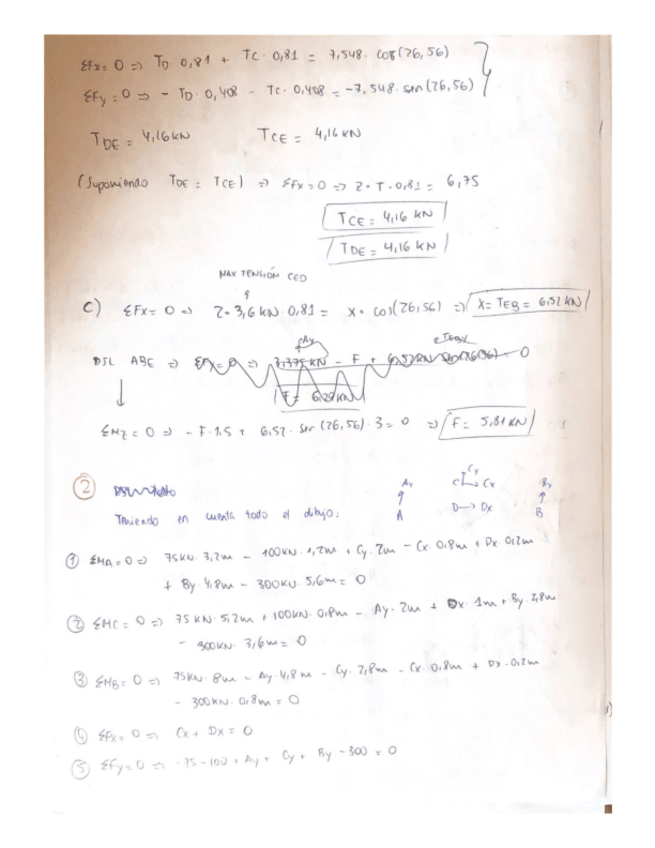 ΣFx = 0 => TD · 0,81 + TC · 0,81 = 7,548 · cos(26,56)
ΣFy = 0 => - TD · 0,408 - TC · 0,408 = -7,548 · sen(26,56)
TDE = 4,16 kN TCE = 4,16 kN
(Suponiendo TDE = TCE) => ΣFx = 0 => 2 · T · 0,81 = 6,75
TCE = 4,16 kN
TDE = 4,16 kN
MAX TENSIÓN CED
C) ΣFx = 0 => 2 · 3,6 kN · 0,81 = x · cos(26,56) => x = TEB = 6,52 kN
DSL ABE => ΣFx = 0 => 3,375 kN - F + 6,52 kN sen(26,56) = 0
F = 6,29 kN
ΣMz = 0 => - F · 1.5 + 6,52 · sen (26,56) · 3 = 0 => F = 5,81 kN
②
Teniendo en cuenta todo el dibujo:
Ay Cy By
C Cx
A D -> Dx B
① ΣMA = 0 => 75 kN · 3,2m - 100kN · 1,2m + Cy · 2m - Cx · 0,8m + Dx · 0,2m
+ By · 4,8m - 300kN · 5,6m = 0
② ΣMC = 0 => 75 kN · 5,2m + 100kN · 0,8m - Ay · 2m + Dx · 1m + By · 2,8m
- 300kN · 3,6m = 0
③ ΣMB = 0 => 75kN · 8m - Ay · 4,8m - Cy · 2,8m - Cx · 0,8m + Dx · 0,2m
- 300kN · 0,8m = 0
④ ΣFx = 0 => Cx + Dx = 0
⑤ ΣFy = 0 => -75 - 100 + Ay + Cy + By - 300 = 0